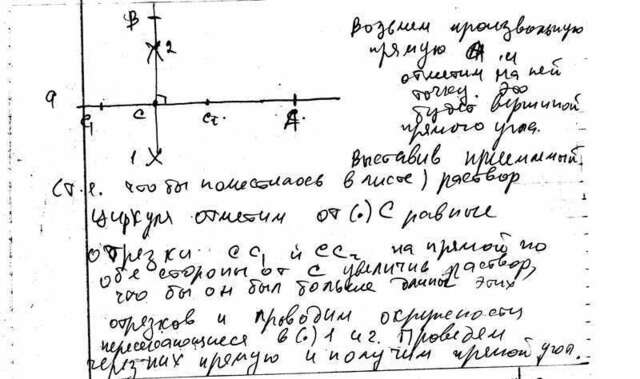 В
2
а
С₁
С
С₂
А
1
Возьмем произвольную
прямую и
отметим на ней
точку. Это
будет вершиной
прямого угла.
Выставив приемлемый
(т.е. что бы поместилось в листе) раствор
циркуля отметим от (.) С равные
отрезки СС₁ и СС₂ на прямой по
обе стороны от С увеличив раствор,
что бы он был больше длины этих
отрезков и проводим окружности
пересекающиеся в (.) 1 и 2. Проведем
через них прямую и получим прямой угол.